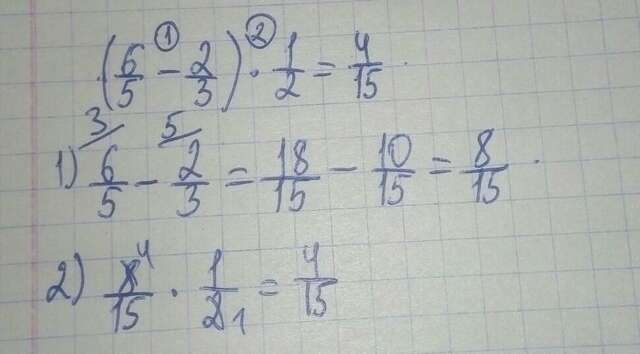 ① ②
(6/5 - 2/3) · 1/2 = 4/15
3/ 5/
1) 6/5 - 2/3 = 18/15 - 10/15 = 8/15
2) 8⁴/15 · 1/2₁ = 4/15